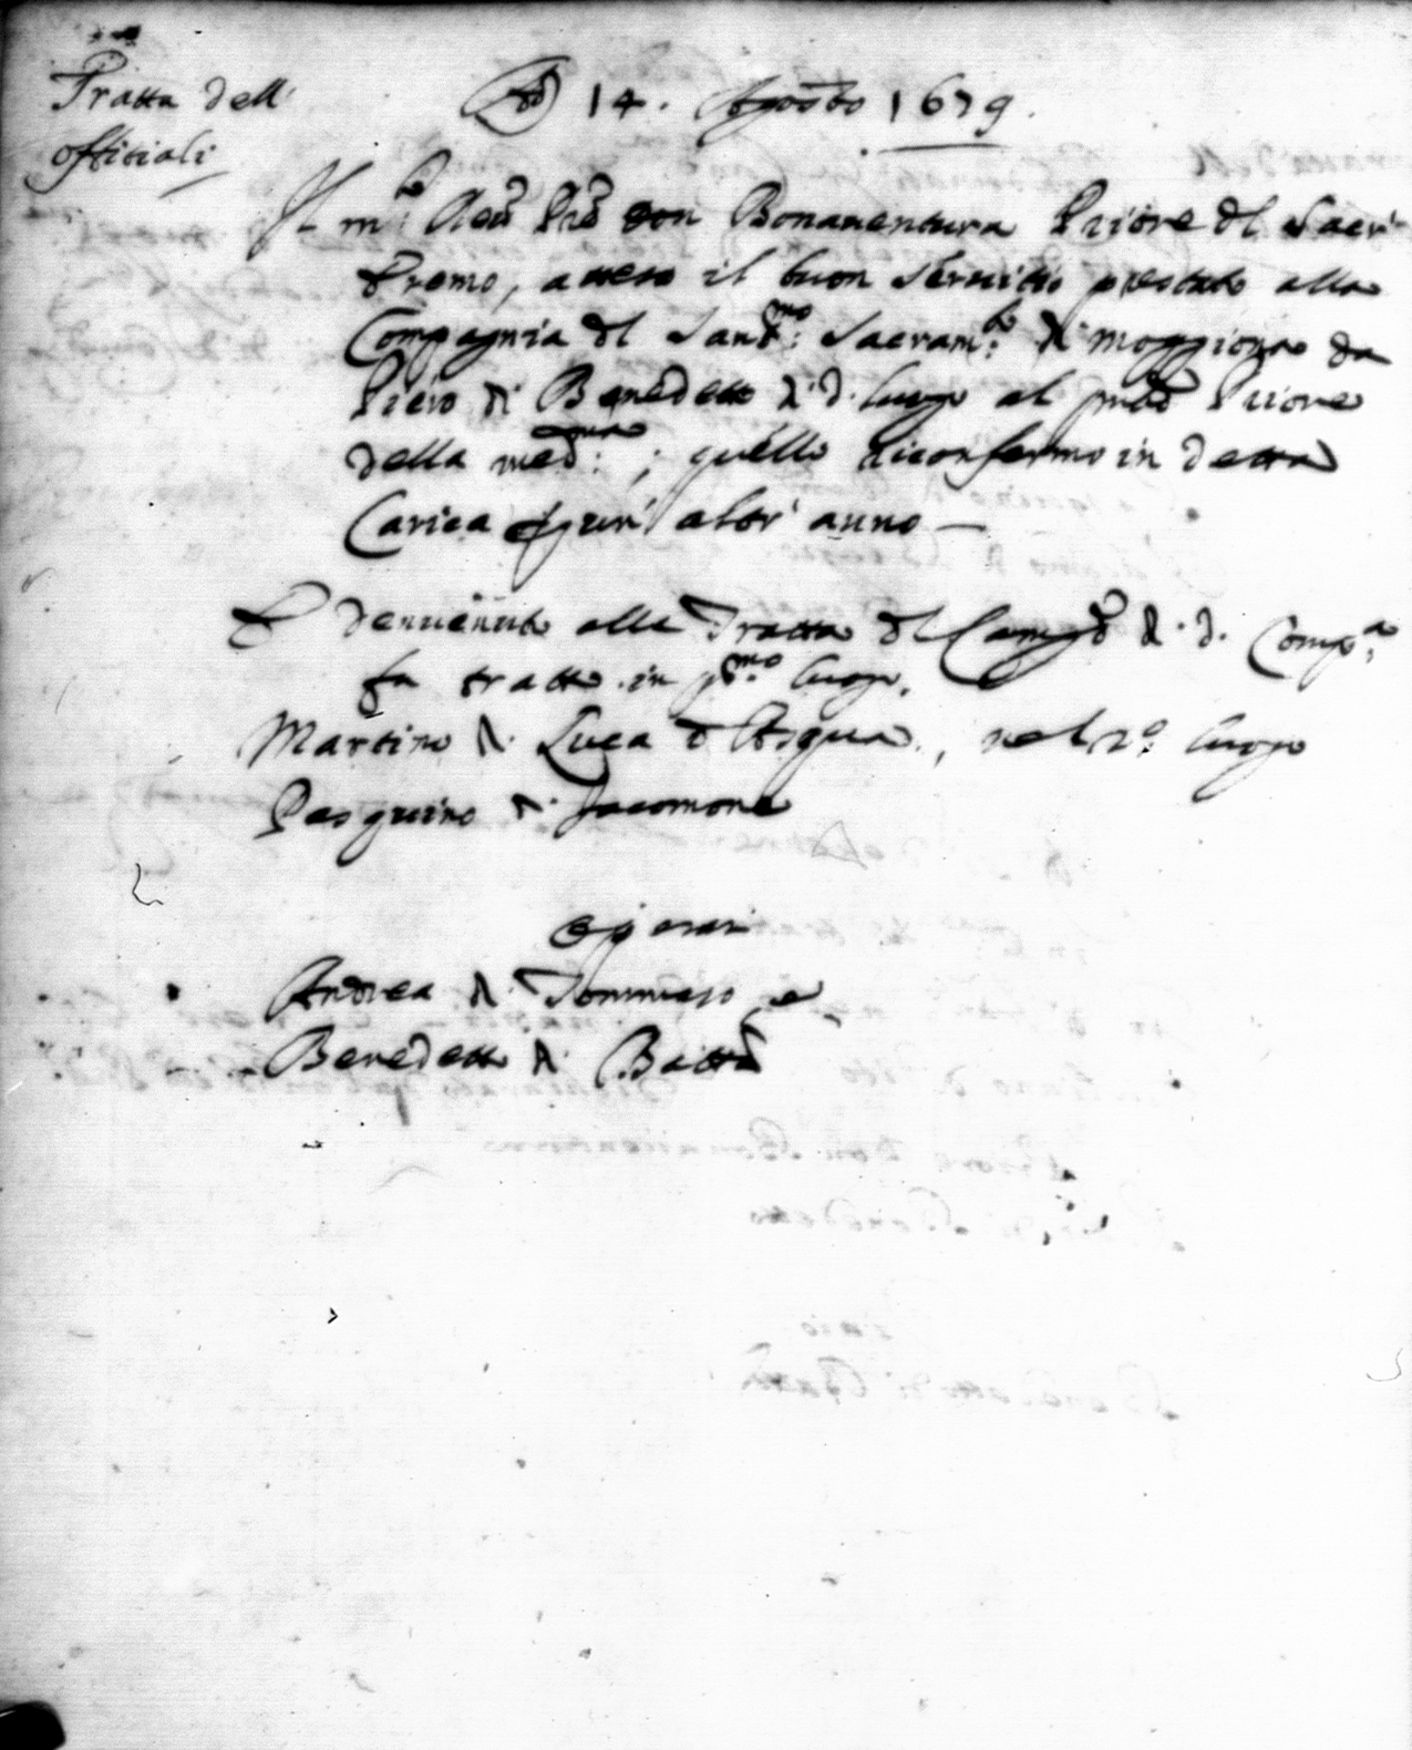 Tratta dell'
offitiali
Ad 14. Agosto 1679.
Il m.to Reud Pre don Bonauentura Priore dl Sacr'
Eremo, atteso il buon seruitio prestato alla
Compagnia dl Sant.mo: Sacram.to: di Moggiona da
Piero di Benedetto di d. luogo al pnte Priore
della med.ma: ; quello riconfermo in detta
Carica p un' altr' anno —
E deuenuto alla Tratta dl Camgo di d. Comp.a:
fu tratto in p.mo luogo.
Martino di Luca d'Acqua, nel 2.o luogo
Pasquino di Jacomone
Operai
Andrea di Tommaso e
Benedetto di Batta